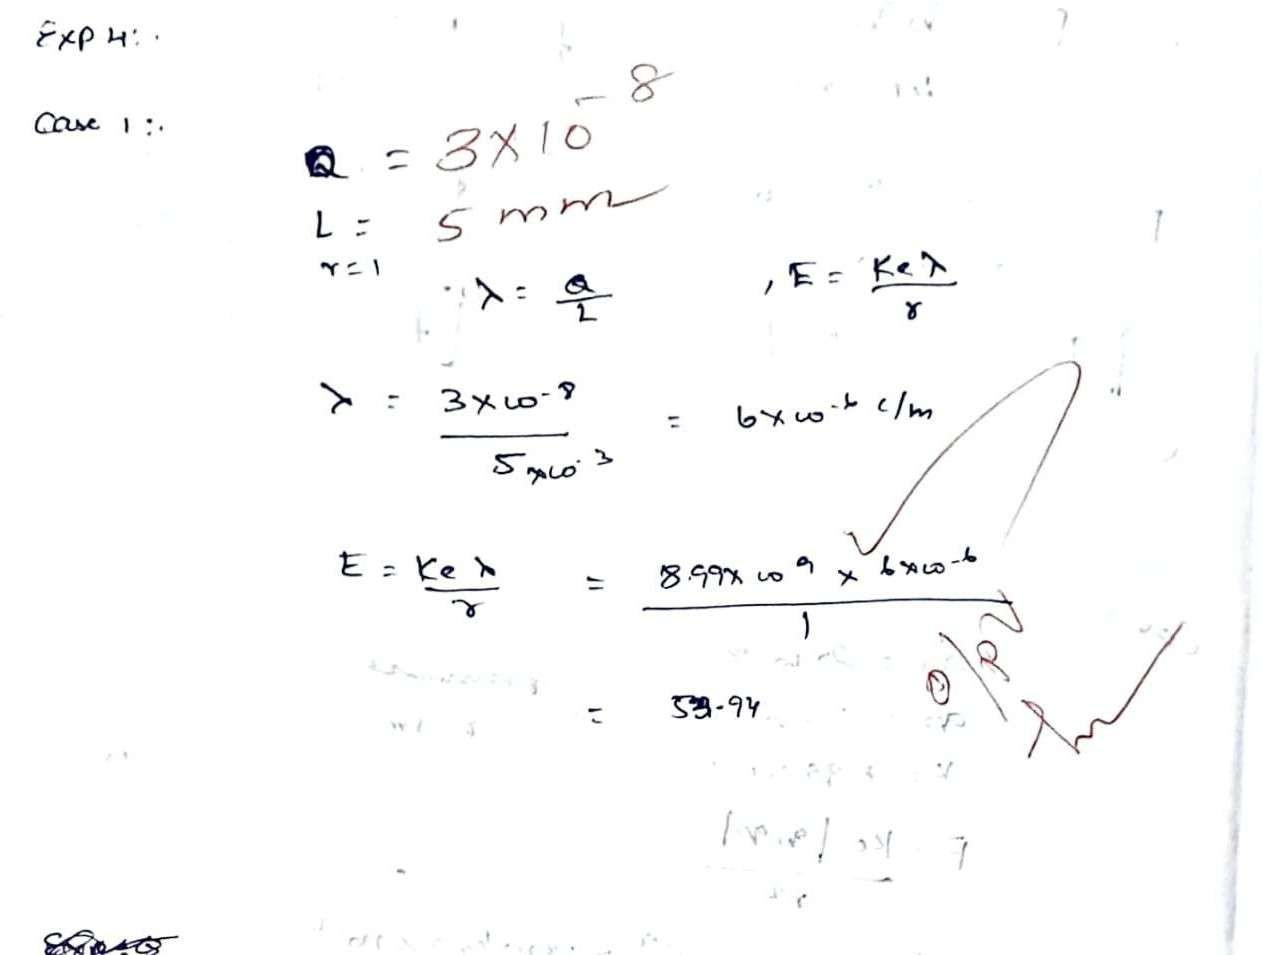 Exp 4:.
Case 1:.
Q = 3×10⁻⁸
L = 5 mm
r=1
λ = Q/L , E = Keλ/r
λ = 3×10⁻⁸/5×10⁻³ = 6×10⁻⁶ c/m
E = Keλ/r = 8.99×10⁹ × 6×10⁻⁶/1
= 53.94